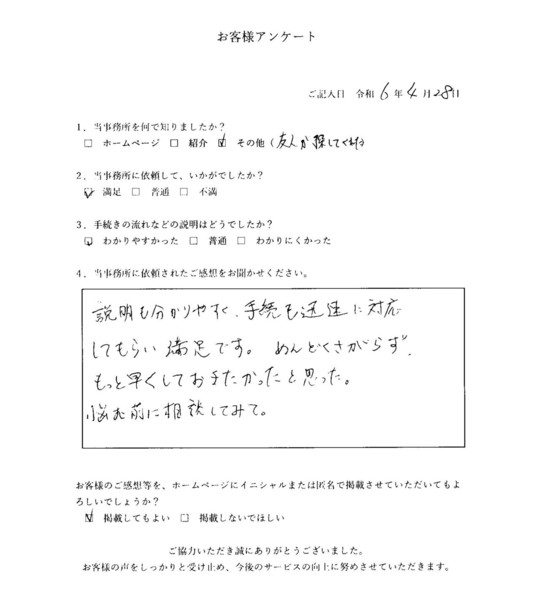 お客様アンケート
ご記入日 令和 6 年 4 月 28 日
1. 当事務所を何で知りましたか?
□ ホームページ □ 紹介 ☑ その他 (友人が探してくれた)
2. 当事務所に依頼して、いかがでしたか?
☑ 満足 □ 普通 □ 不満
3. 手続きの流れなどの説明はどうでしたか?
☑ わかりやすかった □ 普通 □ わかりにくかった
4. 当事務所に依頼されたご感想をお聞かせください。
説明も分かりやすく、手続も迅速に対応
してもらい満足です。めんどくさがらず、
もっと早くしておきたかったと思った。
悩む前に相談してみて。
お客様のご感想等を、ホームページにイニシャルまたは匿名で掲載させていただいてもよ
ろしいでしょうか?
☑ 掲載してもよい □ 掲載しないでほしい
ご協力いただき誠にありがとうございました。
お客様の声をしっかりと受け止め、今後のサービスの向上に努めさせていただきます。